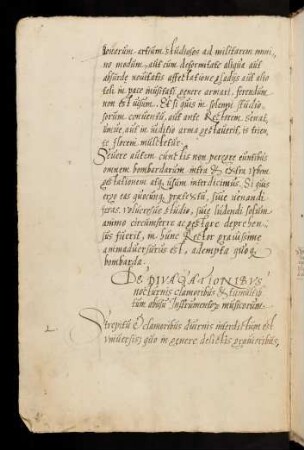 bonarum artium studiosos ad militarem omni-
no modum, aut cum deformitate aliqua aut
absurde nouitatis affectatione gladijs aut alio
teli in pace inusitati genere armari, ferendum
non est uisum. Et si quis in solemni studio-
sorum conuentu, aut ante Rectorem, senat,
uncue, aut in iuditio arma gestauerit, is trien-
te floreni mulctetur.
Seuere autem cunctis non parcere
omnem bombardarum intra & extra urbem
gestationem atq. usum interdicimus. Si quis
ergo eas quocunq. praetextu, siue uenandi
siue ludendi solum
animo circumferre ac gestare deprehen-
sus fuerit, in hunc Rector grauissime
animaduersurus est, adempta quoq.
bombarda.
DE DIVAGATIONIBVS
nocturnis clamoribus & tumultu
tum abusu Instrumentor. musicorum.
Strepitu & clamoribus diurnis interdictum est
vniuersis, quo in genere delictis grauioribus,